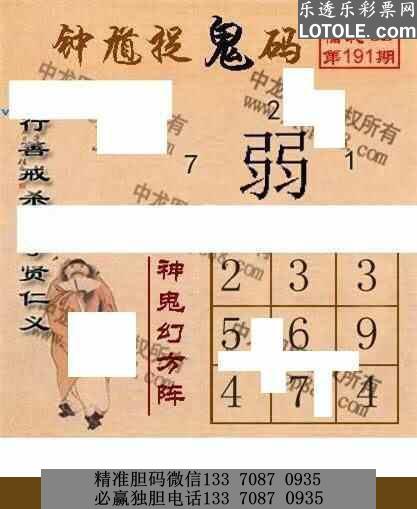 乐透乐彩票网
LOTOLE.COM
钟馗捉鬼码
第191期
行善戒杀
贤仁义
2
弱
7
1
神鬼幻方阵
2 3 3
5 6 9
4 7 4
精准胆码微信133 7087 0935
必赢独胆电话133 7087 0935